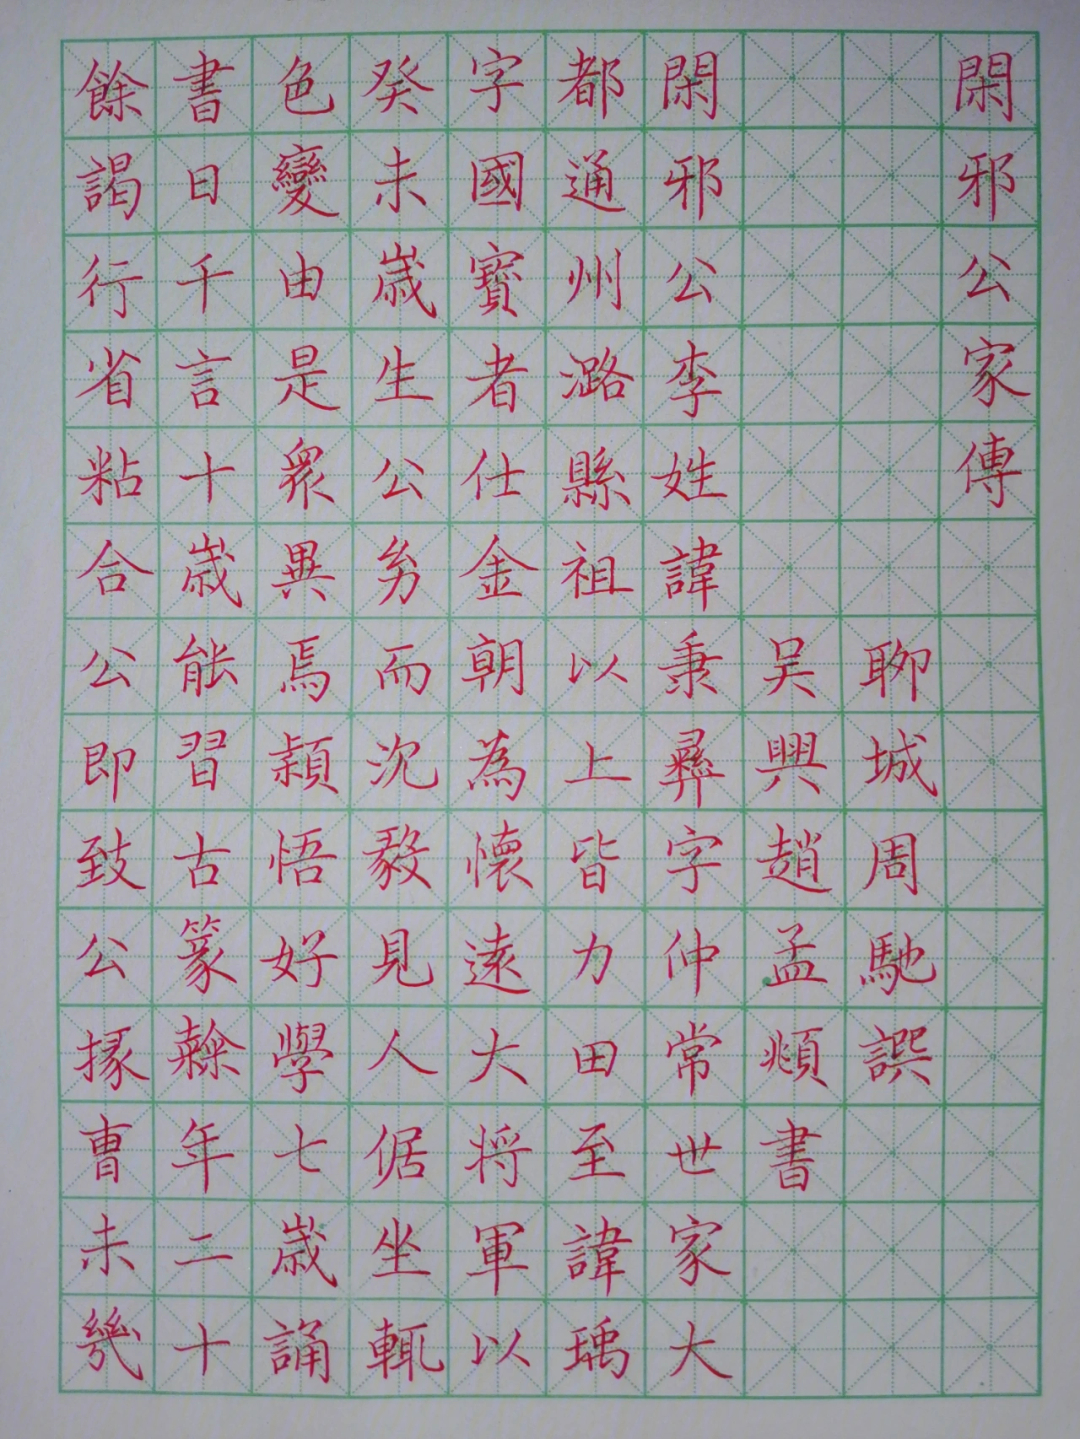 閑邪公家傳
聊城周馳譔
吴興趙孟頫書
閑邪公李姓諱秉彝字仲常世家大
都通州潞縣祖以上皆力田至諱瑀
字國寶者仕金朝為懷遠大將軍以
癸未歲生公㓜而沉毅見人倨坐輒
色變由是衆異焉穎悟好學七歲誦
書日千言十歲能習古篆𣜩年二十
餘謁行省粘合公即致公掾曺未幾